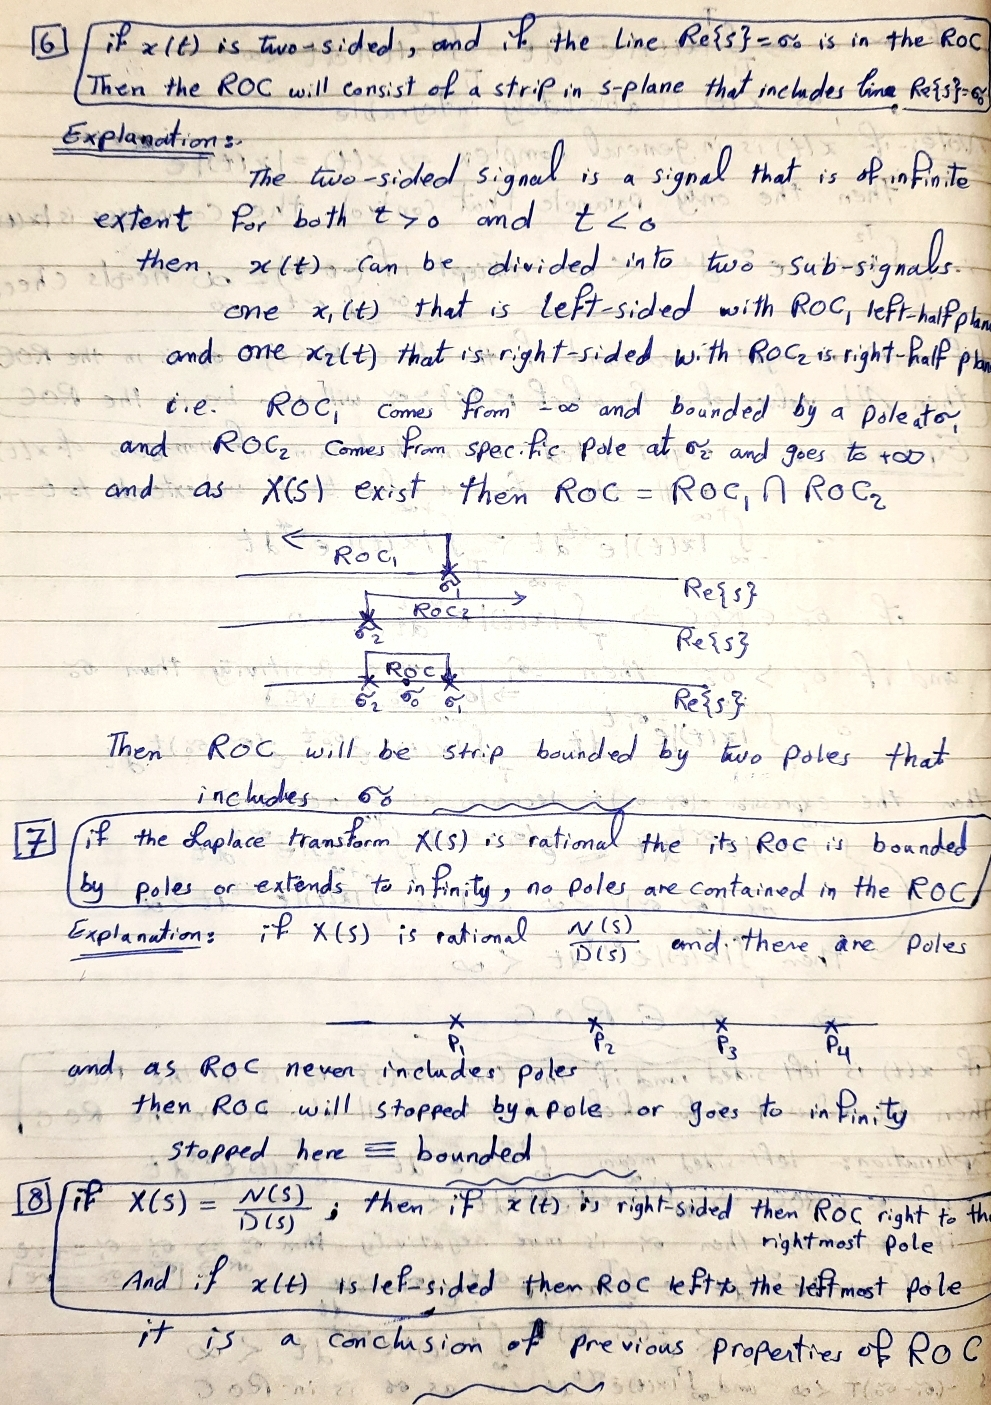 6 if x(t) is two-sided, and if the line Re{s}=σ₀ is in the ROC
Then the ROC will consist of a strip in s-plane that includes line Re{s}=σ₀
Explanation:
The two-sided signal is a signal that is of infinite
extent for both t>0 and t<0
then x(t) can be divided into two sub-signals.
one x₁(t) that is left-sided with ROC₁ left-half plan
and one x₂(t) that is right-sided with ROC₂ is right-half plan
i.e. ROC₁ comes from -∞ and bounded by a pole at σ₁
and ROC₂ comes from specific pole at σ₂ and goes to +∞
and as X(S) exist then ROC = ROC₁ ∩ ROC₂
ROC₁
σ₁
Re{s}
ROC₂
σ₂
Re{s}
ROC
σ₂ σ₀ σ₁
Re{s}
Then ROC will be strip bounded by two poles that
includes σ₀
7 if the Laplace transform X(s) is rational the its ROC is bounded
by poles or extends to infinity, no poles are contained in the ROC
Explanation: if X(s) is rational N(s)/D(s) and there are poles
P₁ P₂ P₃ P₄
and as ROC never includes poles
then ROC will stopped by a pole or goes to infinity
stopped here ≡ bounded
8 if X(s) = N(s)/D(s) ; then if x(t) is right-sided then ROC right to the
rightmost pole
And if x(t) is lef-sided then ROC left to the leftmost pole
it is a conclusion of previous properties of ROC